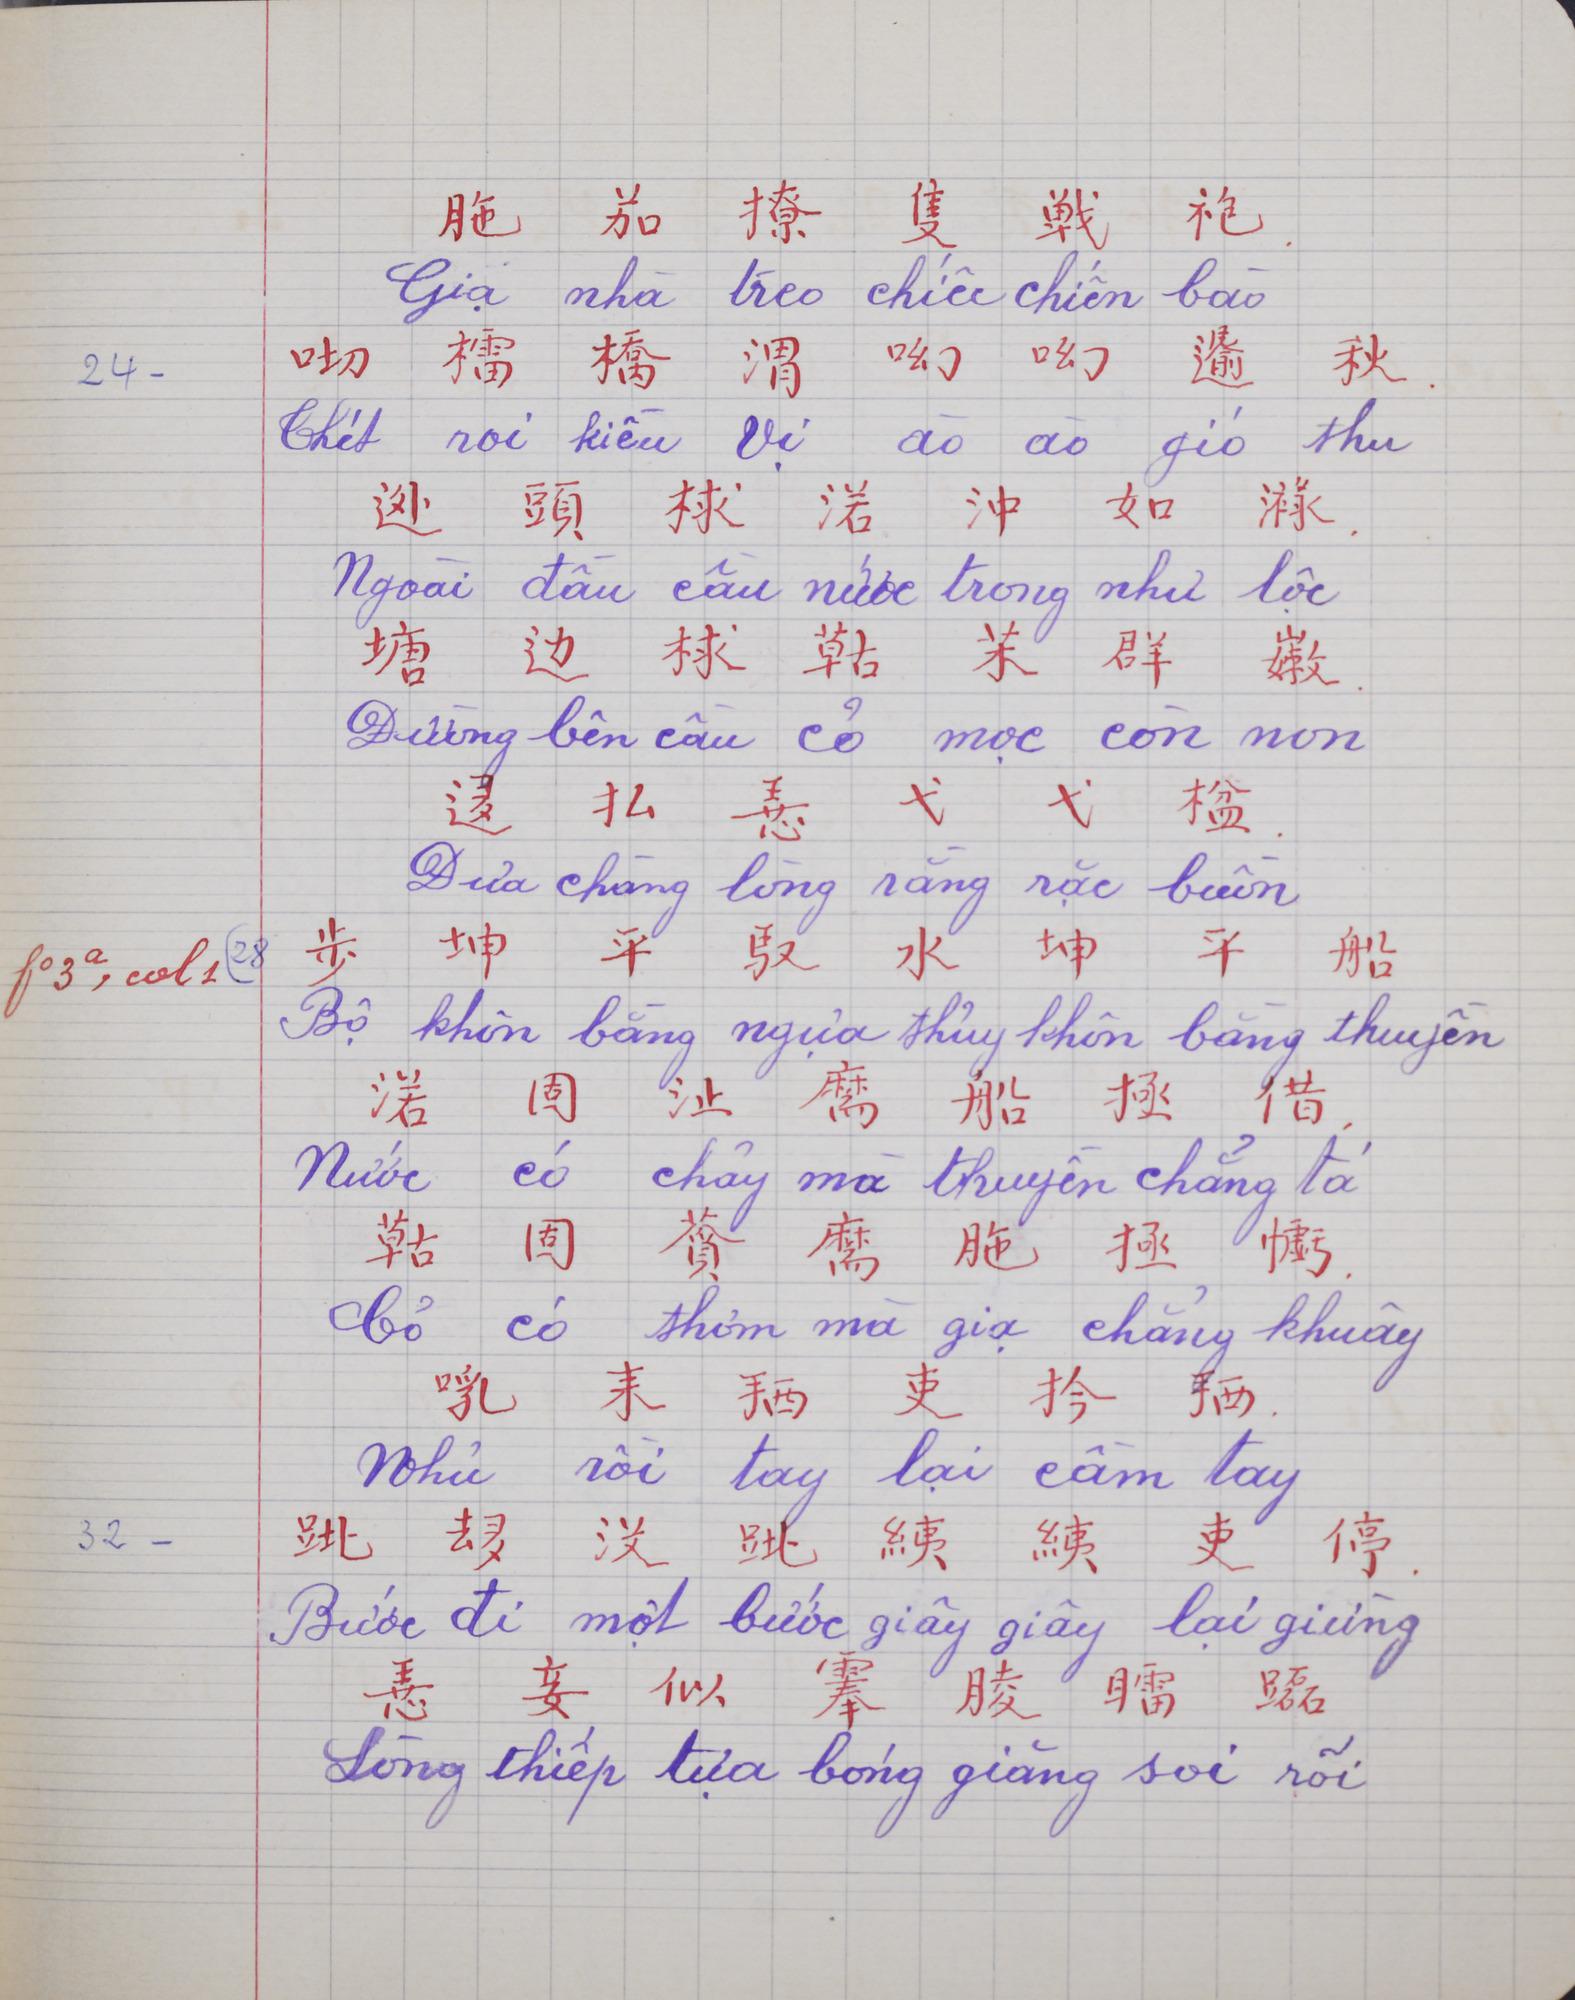 𦚐 茄 撩 隻 戦 袍.
Giạ nhà treo chiếc chiến bào
24-
𠯦 橊 橋 渭 呦 呦 𨔍 秋.
Thét roi kiều Vị ào ào gió thu
外 頭 梂 渃 沖 如 淥.
Ngoài đầu cầu nước trong như lộc
塘 边 梂 𦹵 茉 群 嫩.
Đường bên cầu cỏ mọc còn non
払 弋 弋 㿝.
Đưa chàng lòng rằng rặc buồn
fo 3a, col 1 28
步 坤 平 馭 水 坤 平 船
Bộ khôn bằng ngựa thủy khôn bằng thuyền
渃 固 沚 麿 船 拯 借.
Nước có chảy mà thuyền chẳng tá
𦹵 固 麿 𦚐 拯
Cỏ có thơm mà giạ chẳng khuây
耒 𢬣 吏 扲 𢬣.
Nhủ rồi tay lại cầm tay
32 -
𨀈 𠫾 没 𨀈 吏 停.
Bước đi một bước giây giây lại giừng
妾 似
Lòng thiếp tựa bóng giăng soi rõi